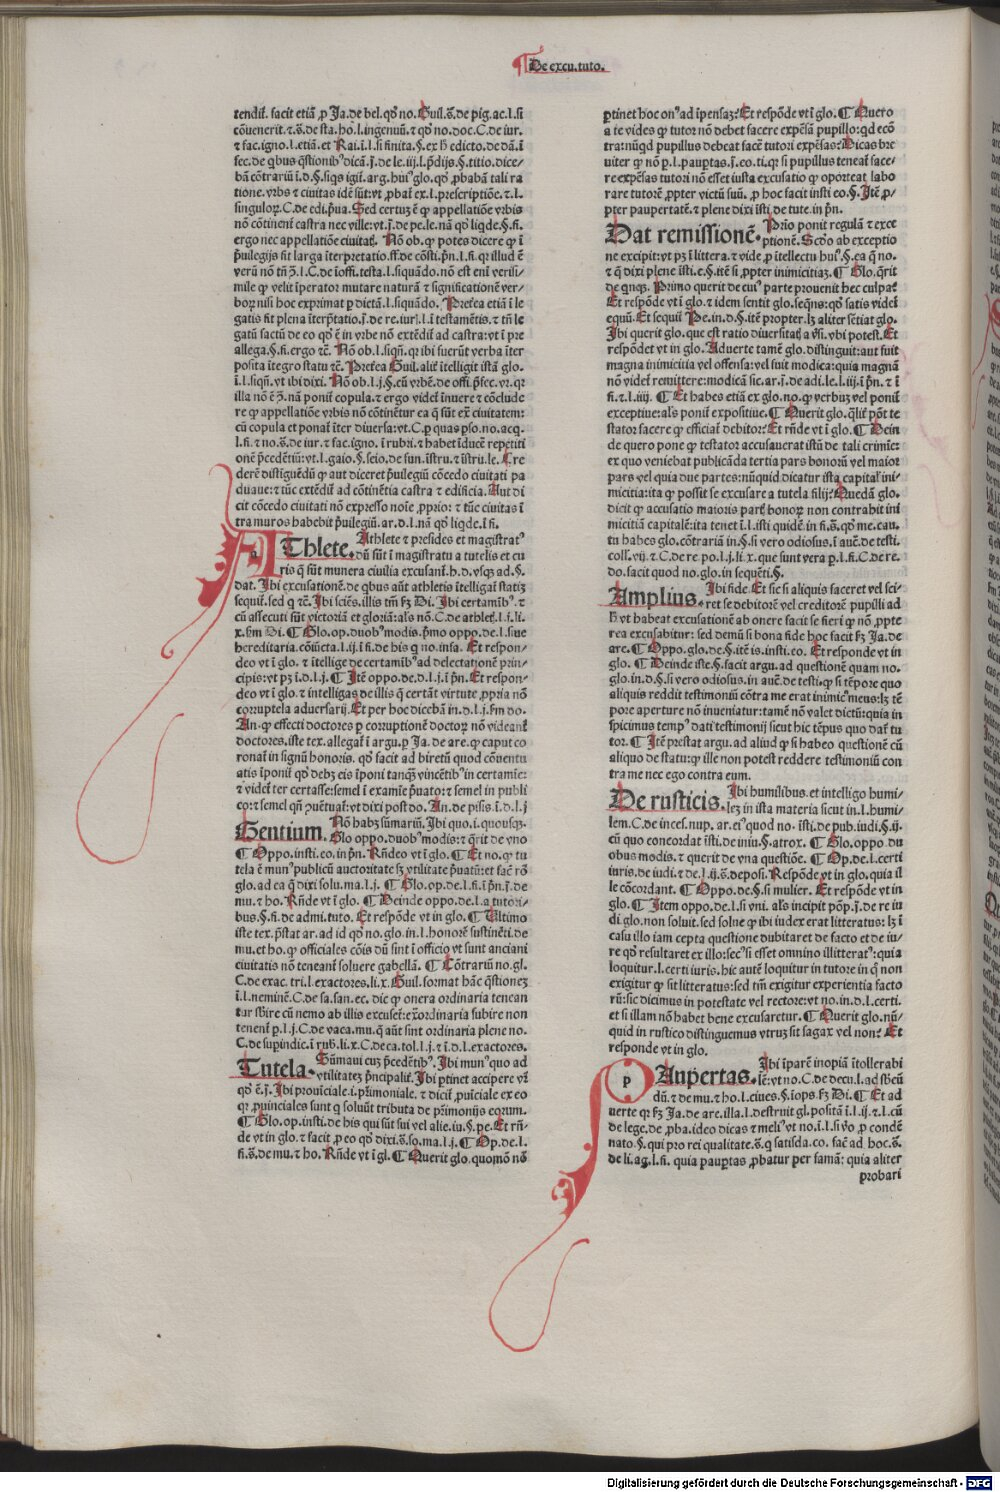 ¶ De excu.tuto.
tendit̄. facit etiā ꝓ Ja.de bel.qō no. Guil.s̄.de pig.ac.l.si
cōuenerit.⁊.s̄.de sta.ho.l.ingenuū.⁊ qō no.doc.C.de iur.
⁊ fac.igno.l.etiā.et Rai.i.l.si finita.§.ex h̄ edicto.de dā.ī
bā cōtrariū ī.d.§.siqs igit̄.arg.huiꝰ glo.qō ꝓbabā tali ra
tione.vrbs ⁊ ciuitas idē sūt:vt ꝓbat̄ ex.l.prescriptiōe.⁊.l.
singuloꝝ.C.de edi.p̄ua. Sed certuꝫ ē ꝙ appellatiōe vrbis
nō cōtinent̄ castra nec ville:vt.j.de pe.le.nā qō liqde.§.fi.
ergo nec appellatiōe ciuitat̄. Nō ob.ꝙ potes dicere ꝙ ī
p̄uilegijs fit larga īterpretatio.ff.de cōsti.p̄n.l.fi.qr illud ē
verū nō tn̄ ꝫ.l.C.de īoffi.testa.l.siquādo.nō est eni verisi/
mile ꝙ velit īperator mutare naturā ⁊ significationē ver/
boꝝ nisi hoc exprimat ꝑ dictā.l.siquādo. Preterea etiā ī le
gatis fit plena īterp̄tatio.j.de re.iur.l.ī testamētis.⁊ tn̄ le
gatū factū de eo qō ē in vrbe nō extēdit̄ ad castra:vt ī pre
allega.§.fi.ergo ⁊c̄. Nō ob.l.siqn̄.qr ibi fuerūt verba īter
posita ītegro statu ⁊c̄. Preterea Guil.alit̄ ītelligit istā glo.
ī.l.siqn̄.vt ibi dixi. Nō ob.l.j.§.cū vrbē.de offi.p̄fec.vr.qr
illa nō ē ꝫ.nā ponit̄ copula.⁊ ergo videt̄ īnuere ⁊ cōclude
re ꝙ appellatiōe vrbis nō cōtinētur ea q̄ sūt ext̄ ciuitatem:
cū copula et ponat̄ īter diuersa:vt.C.ꝑ quas pso.no.acq.
l.fi.⁊ no.s̄.de iur.⁊ fac.igno.ī rubri.⁊ habet īducē repetiti
onē p̄cedētiū:vt.l.gaio.§.seio.de fun.īstru.⁊ īstru.le. Cre
derē distiguēdū ꝙ aut diceret p̄uilegiū cōcedo ciuitati pa
duaue:⁊ tūc extēdit̄ ad cōtinētia castra ⁊ edificia. Aut di
cit cōcedo ciuitati nō expresso noīe ꝓprio:⁊ tūc ciuitas ī
tra muros habebit p̄uilegiū.ar.d.l.nā qō liqde.ī fi.
AThlete. Athlete ⁊ presides et magistratꝰ
dū sūt ī magistratu a tutelis et cu
ris q̄ sūt munera ciuilia excusant̄.h.d.vsqꝫ ad.§.
dat. Ibi excusationē.de qbus aūt athletis ītelligat̄ statiꝫ
sequit̄.sed q ⁊c̄. Ibi sciēs.illis tm̄ fꝫ Di. Ibi certamībꝰ.⁊
cū assecuti sūt victoriā et gloriā:als nō.C.de athlet̄.l.i.li.
x.fm Di. ¶ Glo.op.duobꝰ modis.p̄mo oppo.de.l.siue
hereditaria.cōiūcta.l.ij.ī fi.de his q̄ no.infa. Et respon/
deo vt ī glo.⁊ ītellige de certamībꝰ ad delectationē prin/
cipis:vt pꝫ ī.d.l.j. ¶ Itē oppo.de.d.l.j.ī p̄n. Et respon/
deo vt ī glo.⁊ intelligas de illis q̄ certāt virtute ꝓpria nō
corruptela aduersarij. Et per hoc dicebā in.d.l.j.fm do.
An.ꝙ effecti doctores ꝑ corruptionē doctoꝝ nō videant̄
doctores.iste tex.allegat̄ ī argu.ꝑ Ja.de are.ꝙ caput co
ronat̄ in signū honoris. qō facit ad biretū quod cōuentu
atis īponit̄ qō debꝫ eis īponi tanqꝫ vincētibꝰ in certamīe:
⁊ videt̄ ter certasse:semel ī examīe p̄uato:⁊ semel in publi
co:⁊ semel qn̄ ꝓuētuat̄:vt dixi post do. An.de pisis.ī.d.l.j
Gentium. Nō habꝫ sūmariū. Ibi quo.i.quousqꝫ.
Glo oppo.duobꝰ modis:⁊ qrit de vno
¶ Oppo.insti.eo.in p̄n. Rn̄deo vt ī glo. ¶ Et no.ꝙ tu
tela ē munꝰ publicū auctoritate sꝫ vtilitate p̄uatū:et fac rō
glo.ad ea q̄ dixi solu.ma.l.j. ¶ Glo.op.de.l.fi.ī p̄n.j.de
mu.⁊ ho. Rn̄de vt ī glo. ¶ Deinde oppo.de.l.a tutori/
bus.§.fi.de admi.tuto. Et respōde vt in glo. ¶ Ultimo
iste tex.p̄stat ar.ad id qō no.glo.in.l.honorē sustinēti.de
mu.et ho.ꝙ officiales cōis dū sint ī officio vt sunt anciani
ciuitatis nō teneant̄ soluere gabellā. ¶ Cōtrariū no.gl.
C.de exac.tri.l.exactores.li.x. Guil.format hāc q̄stionez
ī.l.neminē.C.de sa.san.ec. dic ꝙ onera ordinaria tenean
tur sb̄ire cū nemo ab illis excuset̄:extraordinaria subire non
tenent̄ ꝑ.l.j.C.de vaca.mu.q̄ aūt sint ordinaria plene no.
C.de sup̄indic.ī rub̄.li.x.C.de ca.tol.l.j.⁊ ī.d.l.exactores.
Tutela. Sūmaui cuꝫ p̄cedētibꝰ. Ibi munꝰ quo ad
vtilitateꝫ p̄ncipalit̄. Ibi ptinet accipere vt̄
qō ē.j. Ibi prouīciale.i.p̄rimoniale.⁊ dicit̄ ꝓuīciale ex eo
qr ꝓuinciales sunt q̄ soluūt tributa de p̄rimonijs eoꝝ.
¶ Glo.op.insti.de his qui sūt sui vel alie.iu.§.pe. Et rn̄/
de vt in glo.⁊ facit ꝓ eo qō dixi.s̄.so.ma.l.j. ¶ Op.de.l.
fi.s̄.de mu.⁊ ho. Rn̄de vt ī gl. ¶ Querit glo.quomō nō
ptinet hoc onꝰ ad īpensaꝫ? Et respōde vt ī glo. ¶ Quero
a te vides ꝙ tutor nō debet facere expēsā pupillo:qd ecō
tra:nūqd pupillus debeat facē tutori expēsas? Dicas bre
uiter ꝙ nō ꝑ.l.paupītas.j.eo.ti.qr si pupillus teneat̄ face/
re expēsas tutori nō esset iusta excusatio ꝙ oporteat labo
rare tutorē ꝓpter victū suū. ꝓ hoc facit insti eo.§. Itē ꝓ/
pter paupertatē.⁊ plene dixi īsti.de tute.in p̄n.
Dat remissionē. Prīo ponit regulā ⁊ exce
ptionē. Scdō ab exceptio
ne excipit:vt pꝫ ī littera.⁊ vide ꝓ ītellectu huiꝰ.§.ea q̄ no.
⁊ q̄ dixi plene īsti.e.§.itē si ꝓpter inimicitiaꝫ. ¶ Glo.q̄rit
de qnqꝫ. Primo querit de cuiꝰ parte prouenit hec culpa?
Et respōde vt ī glo.⁊ idem sentit glo.seqn̄s:qō satis videt̄
equū. Et sequit̄ Pe.in.d.§.itē propter.lꝫ aliter sētiat glo.
Ibi querit glo.que est ratio diuersitat̄ a v̄si.vbi potest. Et
respōdet vt in glo. Aduerte tamē glo.distinguit:aut fuit
magna inimicitia vel offensa:vel fuit modica:quia magnā
nō videt̄ remittere:modicā sic.ar.j.de adi.le.l.iij.ī p̄n.⁊ ī
fi.⁊.l.iiij. ¶ Et habes etiā ex glo.no.ꝙ verbuꝫ vel ponit̄
exceptiue:als ponit̄ expositiue. ¶ Querit glo.qlit̄ pōt te
stator facere ꝙ efficiat̄ debitor? Et rn̄de vt ī glo. ¶ Dein
de quero pone ꝙ testator accusauerat istū de tali crimīe:
ex quo veniebat publicāda tertia pars bonorū vel maior
pars vel quia due partes:nūquid dicatur ista capital̄ ini/
micitia:ita ꝙ possit se excusare a tutela filij? Quedā glo.
dicit ꝙ accusatio maioris part̄ bonoꝝ non contrahit ini
micitiā capitalē:ita tenet ī.l.isti quidē.in fi.s̄.qō me.cau.
tu habes glo.cōtrariā in.§.si vero odiosus.ī auē.de testi.
coll̄.vij.⁊.C.de re po.l.j.li.x.que sunt vera ꝑ.l.fi.C.de re.
do.facit quod no.glo.in sequēti.§.
Amplius. Ibi fide. Et sic si aliquis faceret vel sci/
ret se debitorē vel creditorē pupilli ad
h̄ vt habeat excusationē ab onere facit se fieri ꝙ nō ꝓpte
rea excusabitur: sed demū si bona fide hoc facit fꝫ Ja.de
are. ¶ Oppo.glo.de.§.itē is.insti.eo. Et responde vt in
glo. ¶ Deinde iste.§.facit argu.ad questionē quam no.
glo.in.d.§.si vero odiosus.in auē.de testi.ꝙ si tēpore quo
aliquis reddit testimoniū cōtra me erat inimicꝰ meus:lꝫ tē
pore aperture nō inueniatur:tamē nō valet dictū:quia in
spicimus tempꝰ dati testimonij sicut hic tēpus quo dat̄ tu
tor. ¶ Itē prestat argu.ad aliud ꝙ si habeo questionē cū
aliquo de statu:ꝙ ille non potest reddere testimoniū con
tra me nec ego contra eum.
De rusticis. Ibi humilibus.et intelligo humi/
leꝫ in ista materia sicut in.l.humi/
lem.C.de inces.nup.ar.eiꝰ quod no.īsti.de pub.iudi.§.ij.
cū quo concordat īsti.de iniu.§.atrox. ¶ Glo.oppo.du
obus modis.⁊ querit de vna questiōe. ¶ Op.de.l.certi
iuris.de iudi.⁊ de.l.ij.s̄.deposi. Respōde vt in glo.quia il
le cōcordant. ¶ Oppo.de.§.si mulier. Et respōde vt in
glo. ¶ Item oppo.de.l.si vni. als incipit pōp.j.de re iu
di.glo.non soluit.sed solue ꝙ ibi iudex erat litteratus: lꝫ ī
casu illo iam cepta questione dubitaret de facto et de iu/
re qō resultaret ex illo:secꝰ si esset omnino illitteratꝰ:quia
loquitur.l.certi iuris.hic autē loquitur in tutore in q̄ non
exigitur ꝙ sit litteratus:sed tm̄ exigitur experientia facto
rū:sic dicimus in potestate vel rectore:vt no.in.d.l.certi.
et si illam nō habet bene excusaretur. ¶ Querit glo.nū/
quid in rustico distinguemus vtrūꝫ sit sagax vel non? Et
responde vt in glo.
PAupertas. Ibi īparē inopiā ītollerabi
lē:vt no.C.de decu.l.ad sb̄eū
dū.⁊ de mu.⁊ ho.l.ciues.§.iops.fꝫ Di. ¶ Et ad
uerte qr fꝫ Ja.de are.illa.l.destruit gl.positā ī.l.ij.⁊.l.cū
de lege.de ꝓba.ideo dicas ⁊ meliꝰ vt no.ī.l.si v̄o ꝑ condē
nato.§.qui pro rei qualitate.s̄.q satisda.co. faē ad hoc.s̄.
de li.ag.l.fi. quia paupīas ꝓbatur per famā: quia aliter
probari
Digitalisierung gefördert durch die Deutsche Forschungsgemeinschaft - DFG